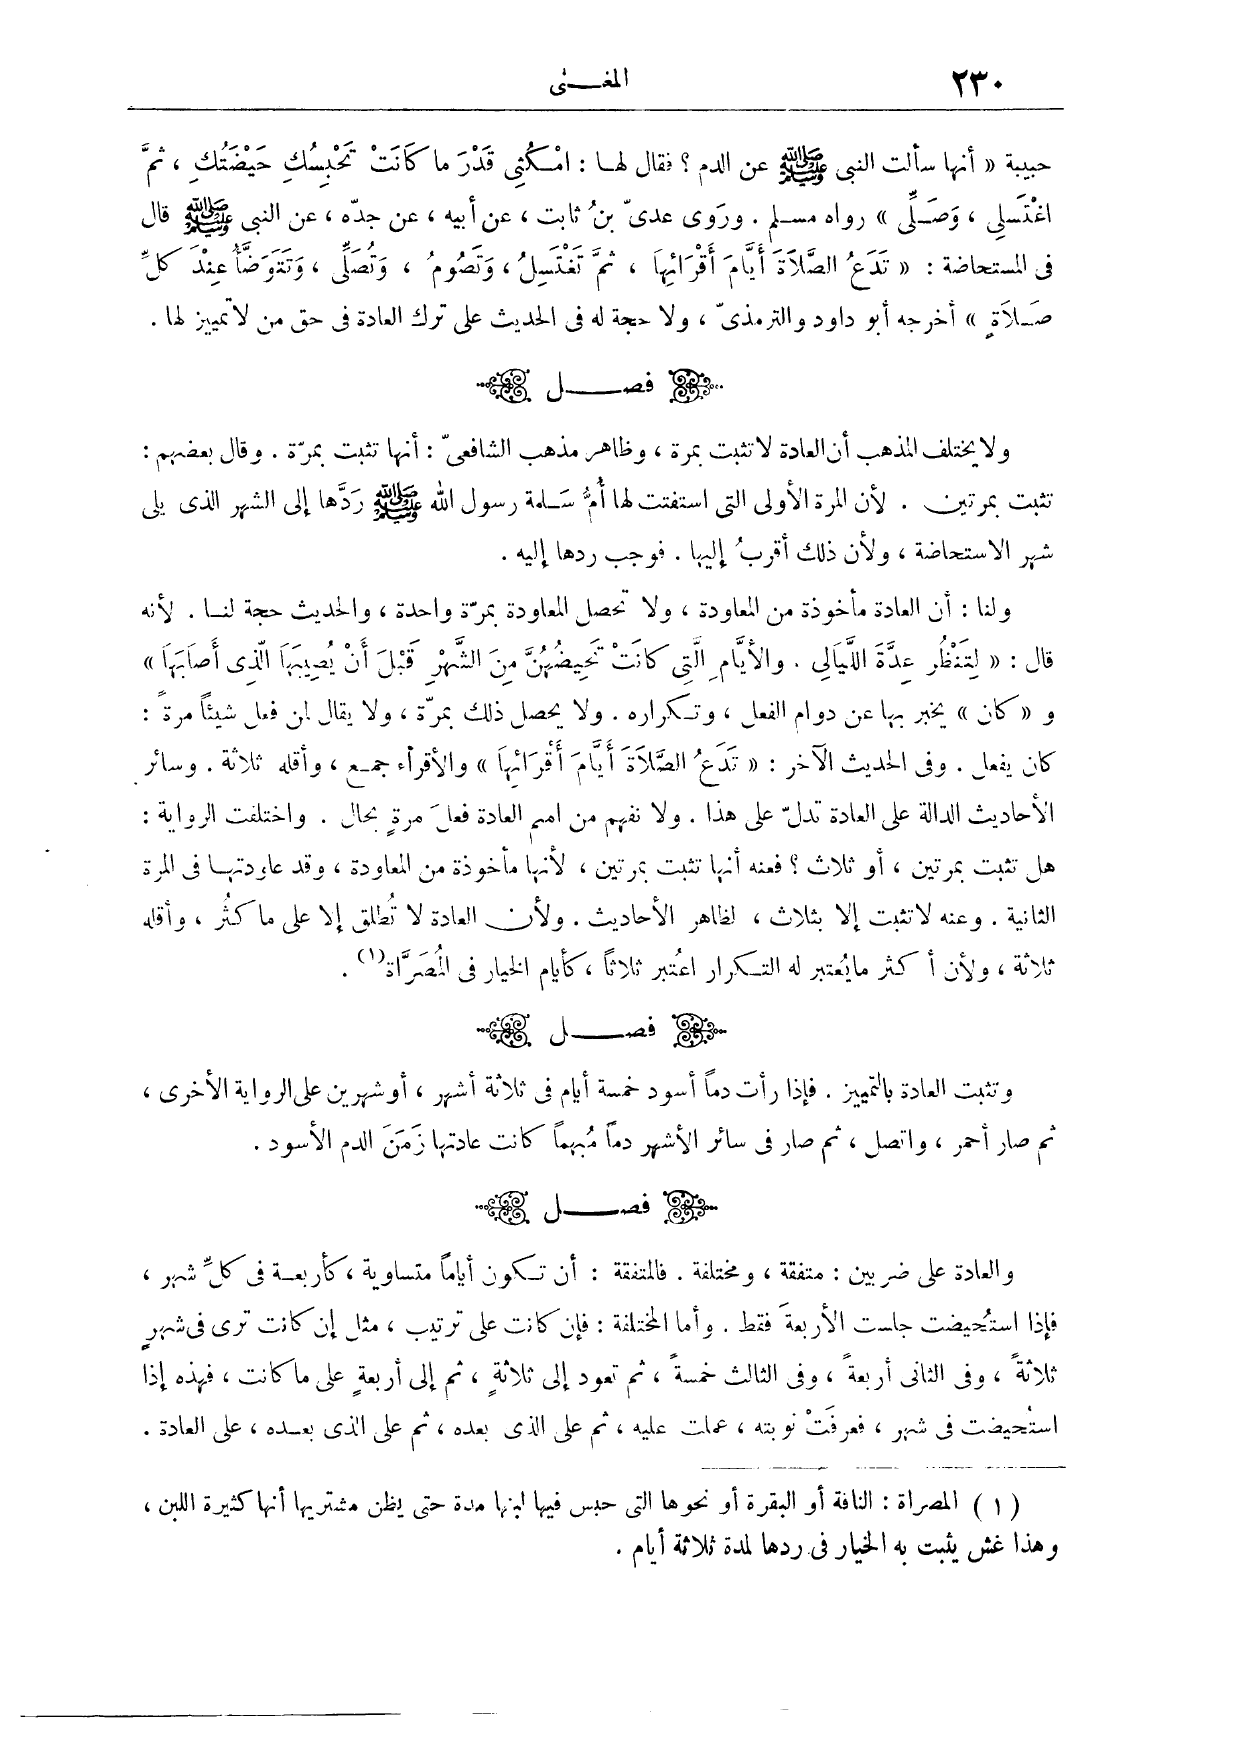 ٢٣٠
المغـنى
حبيبة « أنها سألت النبى ﷺ عن الدم ؟ فقال لهـا : امْكُثِى قَدْرَ ما كَانَتْ تَحْبِسُكِ حَيْضَتُكِ ، ثمَّ
اغْتَسلِى ، وَصَـلِّى » رواه مسـلم . ورَوى عدىّ بنُ ثابت ، عن أبيه ، عن جدّه ، عن النبى ﷺ قال
فى المستحاضة : « تَدَعُ الصَّلاَةَ أَيَّامَ أَقْرَائِهَا ، ثمَّ تَغْتَسِلُ ، وَتَصُومُ ، وَتُصَلِّى ، وَتَتَوَضَّأُ عِنْدَ كلِّ
صَـلاَةٍ » أخرجه أبو داود والترمذىّ ، ولا حجة له فى الحديث على ترك العادة فى حق من لا تمييز لها .
فصـــل
ولا يختلف المذهب أن العادة لا تثبت بمرة ، وظاهر مذهب الشافعىّ : أنها تثبت بمرّة . وقال بعضهم :
تثبت بمرتين . لأن المرة الأولى التى استفتت لها أُمُّ سَـلمة رسول الله ﷺ رَدَّها إلى الشهر الذى يلى
شهر الاستحاضة ، ولأن ذلك أقربُ إليها . فوجب ردها إليه .
ولنا : أن العادة مأخوذة من المعاودة ، ولا تحصل المعاودة بمرّة واحدة ، والحديث حجة لنـا . لأنه
قال : « لِتَنْظُر عِدَّةَ اللَّيَالِى . والأيَّامِ الَّتِى كانَتْ تَحِيضُهُنَّ مِنَ الشَّهْرِ قَبْلَ أَنْ يُصِيبَهَا الّذِى أَصَابَهَا »
و « كان » يخبر بها عن دوام الفعل ، وتـكراره . ولا يحصل ذلك بمرّة ، ولا يقال لمن فعل شيئاً مرةً :
كان يفعل . وفى الحديث الآخر : « تَدَعُ الصَّلاَةَ أَيَّامَ أَقْرَائِهَا » والأقرأء جمـع ، وأقله ثلاثة . وسائر
الأحاديث الدالة على العادة تدلّ على هذا . ولا نفهم من اسم العادة فعلَ مرةٍ بحال . واختلفت الرواية :
هل تثبت بمرتين ، أو ثلاث ؟ فعنه أنها تثبت بمرتين ، لأنها مأخوذة من المعاودة ، وقد عاودتهـا فى المرة
الثانية . وعنه لا تثبت إلا بثلاث ، لظاهر الأحاديث . ولأن العادة لا تُطلق إلا على ما كثُر ، وأقله
ثلاثة ، ولأن أكثر ما يُعتبر له التـكرار اعتُبر ثلاثاً ، كأيام الخيار فى المُصَرَّاة(١) .
فصـــل
وتثبت العادة بالتمييز . فإذا رأت دماً أسود خمسة أيام فى ثلاثة أشهر ، أو شهرين على الرواية الأخرى ،
ثم صار أحمر ، واتصل ، ثم صار فى سائر الأشهر دماً مُبهماً كانت عادتها زَمَنَ الدم الأسود .
فصـــل
والعادة على ضربين : متفقة ، ومختلفة . فالمتفقة : أن تـكون أياماً متساوية ، كأربعـة فى كلِّ شهر ،
فإذا استُحيضت جلست الأربعةَ فقط . وأما المختلفة : فإن كانت على ترتيب ، مثل إن كانت ترى فى شهرٍ
ثلاثةً ، وفى الثانى أربعةً ، وفى الثالث خمسةً ، ثم تعود إلى ثلاثةٍ ، ثم إلى أربعةٍ على ما كانت ، فهذه إذا
استُحيضت فى شهر ، فعرفَتْ نوبته ، عملت عليه ، ثم على الذى بعده ، ثم على الذى بعـده ، على العادة .
( ١ ) المصراة : الناقة أو البقرة أو نحوها التى حبس فيها لبنها مدة حتى يظن مشتريها أنها كثيرة اللبن ،
وهذا غش يثبت به الخيار فى ردها لمدة ثلاثة أيام .